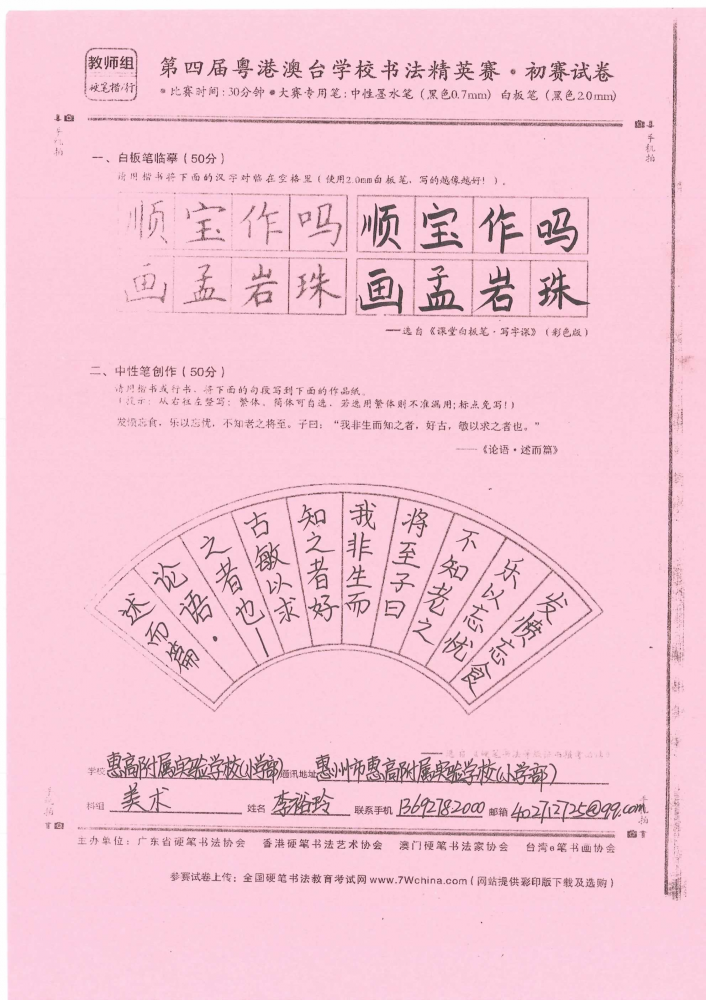 教师组
硬笔楷/行
第四届粤港澳台学校书法精英赛·初赛试卷
●比赛时间:30分钟●大赛专用笔:中性墨水笔(黑色0.7mm) 白板笔(黑色2.0mm)
手机拍
手机拍
一、白板笔临摹(50分)
请用楷书将下面的汉字对临在空格里(使用2.0mm白板笔,写的越像越好!)。
顺宝作吗 顺宝作吗
画孟岩珠 画孟岩珠
——选自《课堂白板笔·写字课》(彩色版)
二、中性笔创作(50分)
请用楷书或行书,将下面的句段写到下面的作品纸。
(提示:从右往左竖写;繁体、简体可自选,若选用繁体则不准混用;标点免写!)
发愤忘食,乐以忘忧,不知老之将至。子曰:“我非生而知之者,好古,敏以求之者也。”
——《论语·述而篇》
发愤忘食
乐以忘忧
不知老之
将至子曰
我非生而
知之者好
古敏以求
之者也—
论语·
述而篇
学校 惠高附属实验学校(小学部) 通讯地址 惠州市惠高附属实验学校(小学部)
科组 美术 姓名 李裕玲 联系手机 13692782000 邮箱 402712725@99.com
手机拍
手机拍
主办单位:广东省硬笔书法协会 香港硬笔书法艺术协会 澳门硬笔书法家协会 台湾e笔书画协会
参赛试卷上传:全国硬笔书法教育考试网www.7Wchina.com(网站提供彩印版下载及选购)